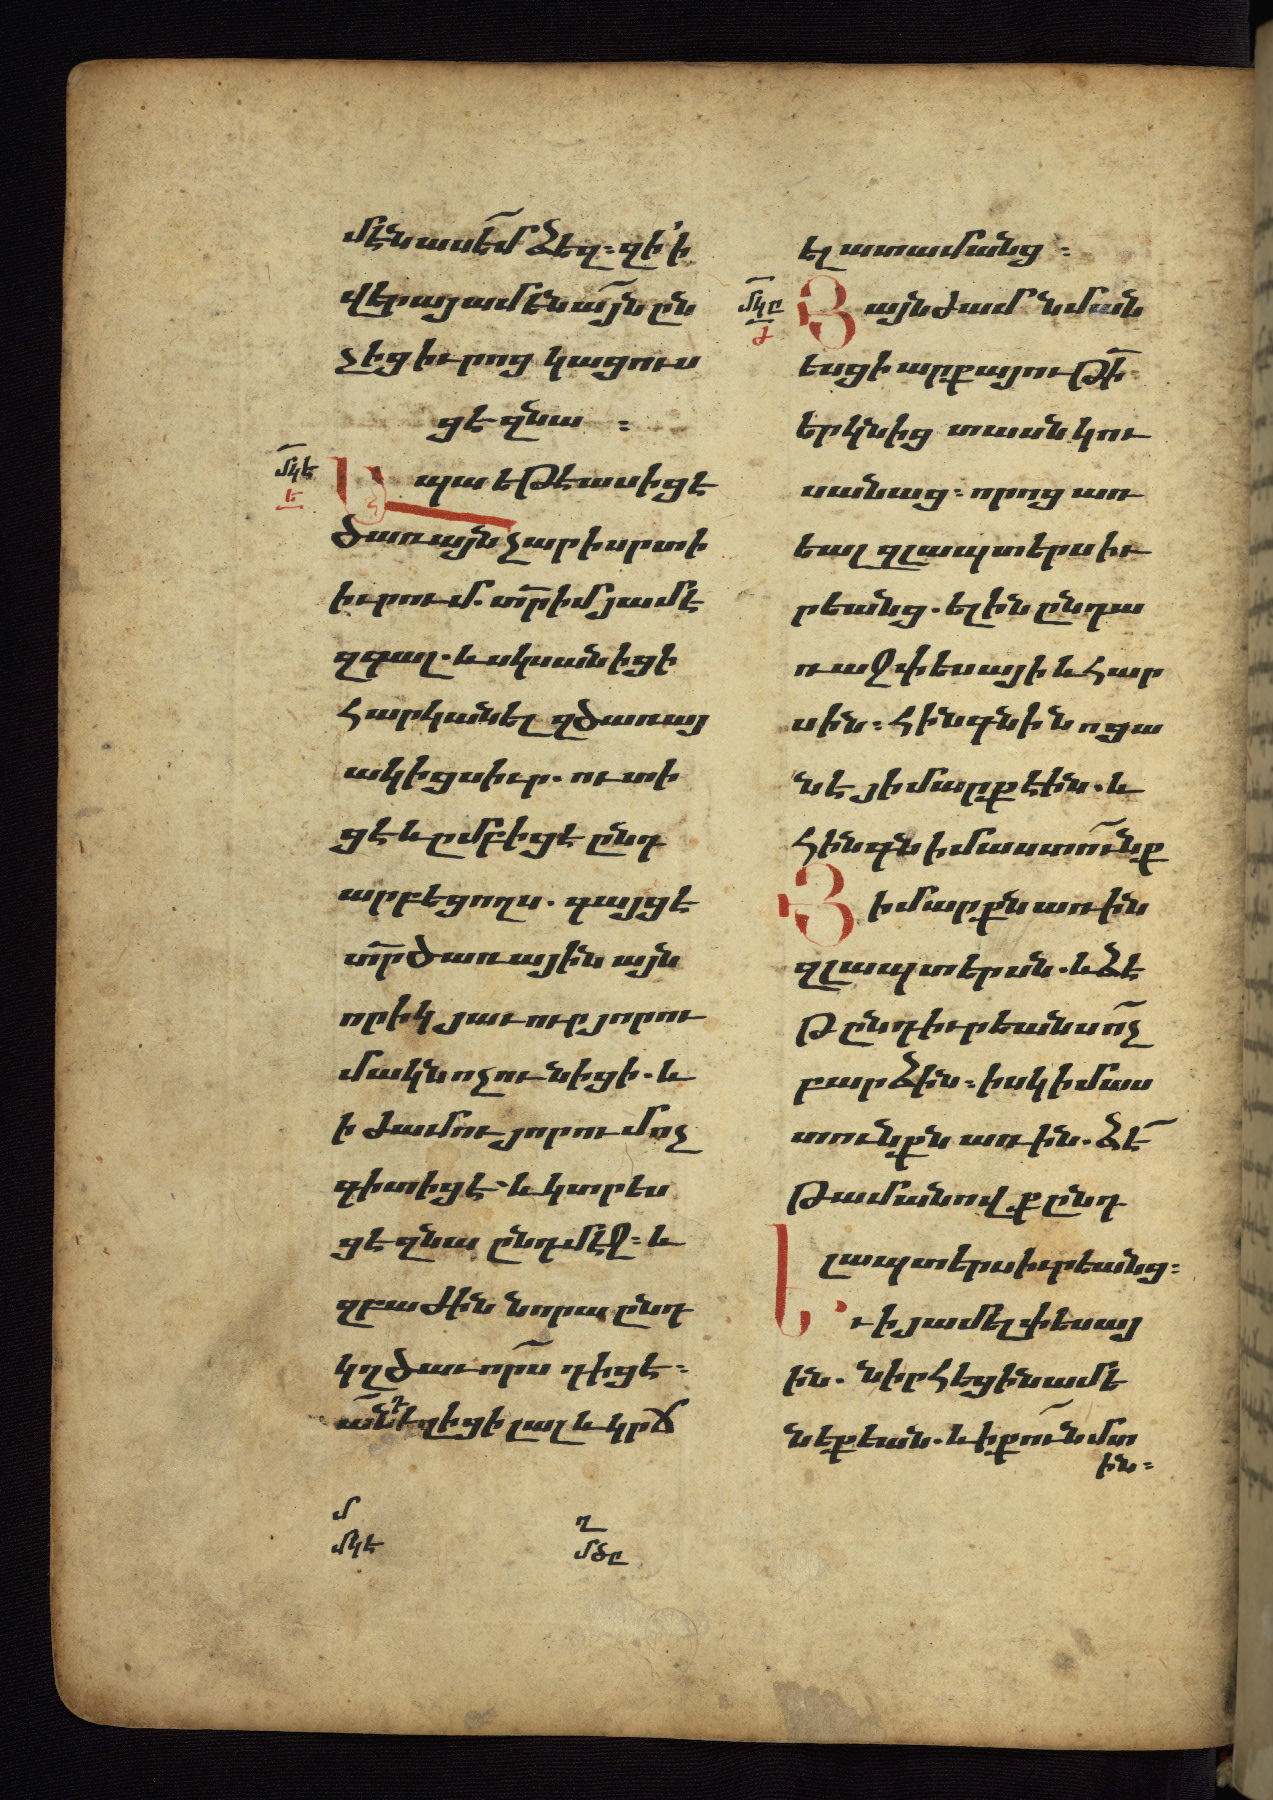 մէն ասեմ ձեզ. զի ՚ի
վերայ ամենայն ըն
չից իւրոց կացուս
ցէ զնա :
մկե
ե
Ապա եթէ ասիցէ
ծառայն չար ի սրտի
իւրում. տր իմ յամէ
զգալ. և սկսանիցի
հարկանել զծառայ
ակիցսիւր. ուտի
ցէ և ըմբիցէ ընդ
արբեցողս. գայցէ
տր ծառային այն
որիկ յաւուր յորու
մ ակն ոչ ունիցի. և
ի ժամու յորում ոչ
գիտիցէ. և կտրես
ցէ զնա ընդ մէջ : և
զբաժին նորա ընդ
կղծաւորս դիցէ :
անդ եղիցի լալ և կրճ
ել ատամանց :
մկը
ժ
Յայնժամ նման
եսցի արքայութի
երկնից տասն կու
սանաց : որոց առ
եալ զլապտերս իւ
րեանց. ելին ընդա
ռաջ փեսայի և հար
սին : հինգն ի նոցա
նէ յիմարք էին. և
հինգն իմաստունք
Յիմարքն առին
զլապտերսն. և ձէ
թ ընդ իւրեանս ոչ
բարձին : իսկ իմաս
տունքն առին. ձէ
թ ամանովք ընդ
լապտերս իւրեանց :
Եւ ի յամել փեսայ
ին. նիրհեցին ամե
նեքեան. և ի քուն մտ
ին :
մ
մկե
ղ
մծը